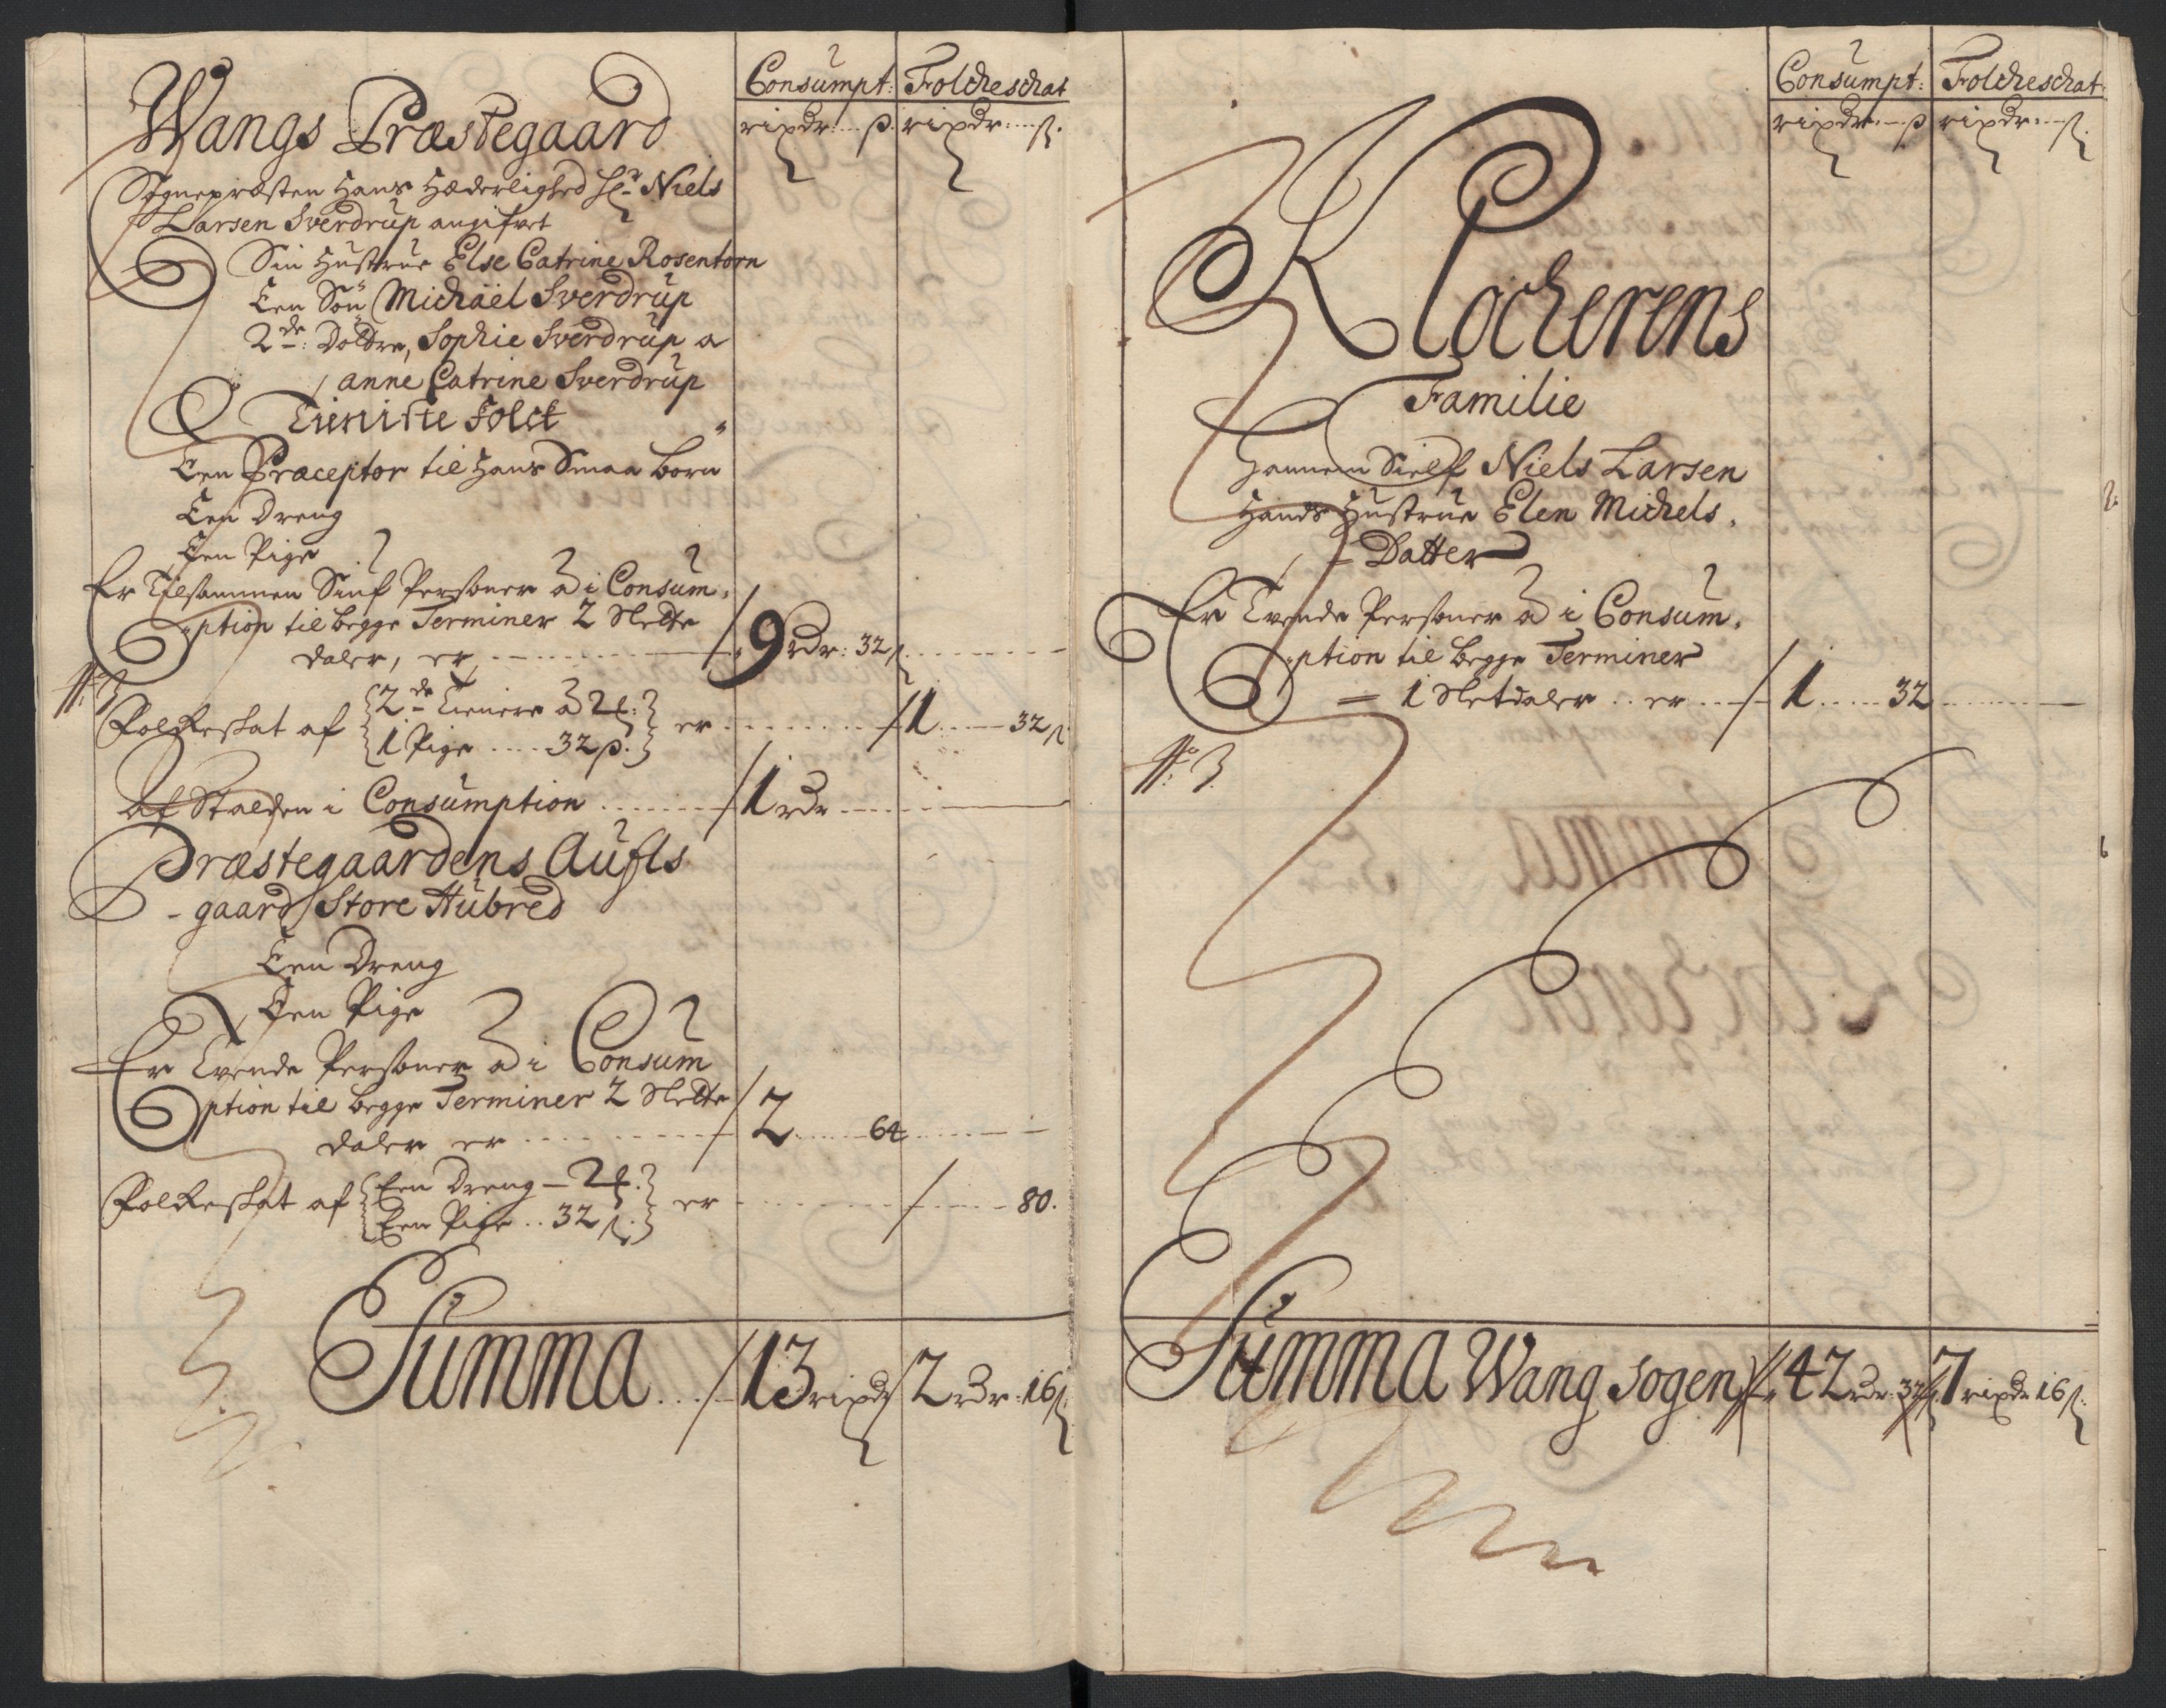 Consumpt: Folcheschat
rixdr:---ß. rixdr:---ß.
Wangs Præstegaard
Sognepræsten Hans Hæderlighed Hr Niels
Larsen Sverdrup angifvet
Sin Hustrue Else Catrine Rosentorn
Een Søn Michaël Sverdrup
2de: Døttre, Sophie Sverdrup a
anne Catrine Sverdrup
Tieniste Folck
Een Præceptor til Hans Smaa børn
Een Dreng
Een Pige
Er Tilsammen Siuf Personer à i Consum,
ption til begge Terminer 2 Slette
daler, er / 9 rdr: 32ß
No 3
Folkeskat af {2de Tienere à 2 1 Pige .... 32ß.} er / 1 --- 32ß
Af Stalden i Consumption / 1 rdr
Præstegaardens Aufls
- gaard Store Hübred
Een Dreng
Een Pige
Er Tvende Personer à i Consum
ption til begge Terminer 2 Slette
daler er / 2 ... 64
Folkeskat af {Een Dreng - 2 Een Pige .. 32ß.} er / 80.
Summa / 13 rixdr / 2 rdr: 16ß
Consumpt: Folcheschat
rixdr:---ß rixdr:---ß.
Klocherens
Familie
Hannem Sielf Niels Larsen
Hands Hustrue Elen Michels,
- Datter
Er Tvende Personer à i Consum,
ption til begge Terminer
= 1 Sletdaler .. er / 1 ..... 32
No 3.
Summa Wang Sogen // 42 rdr: 32ß 7 rixdr 16ß.